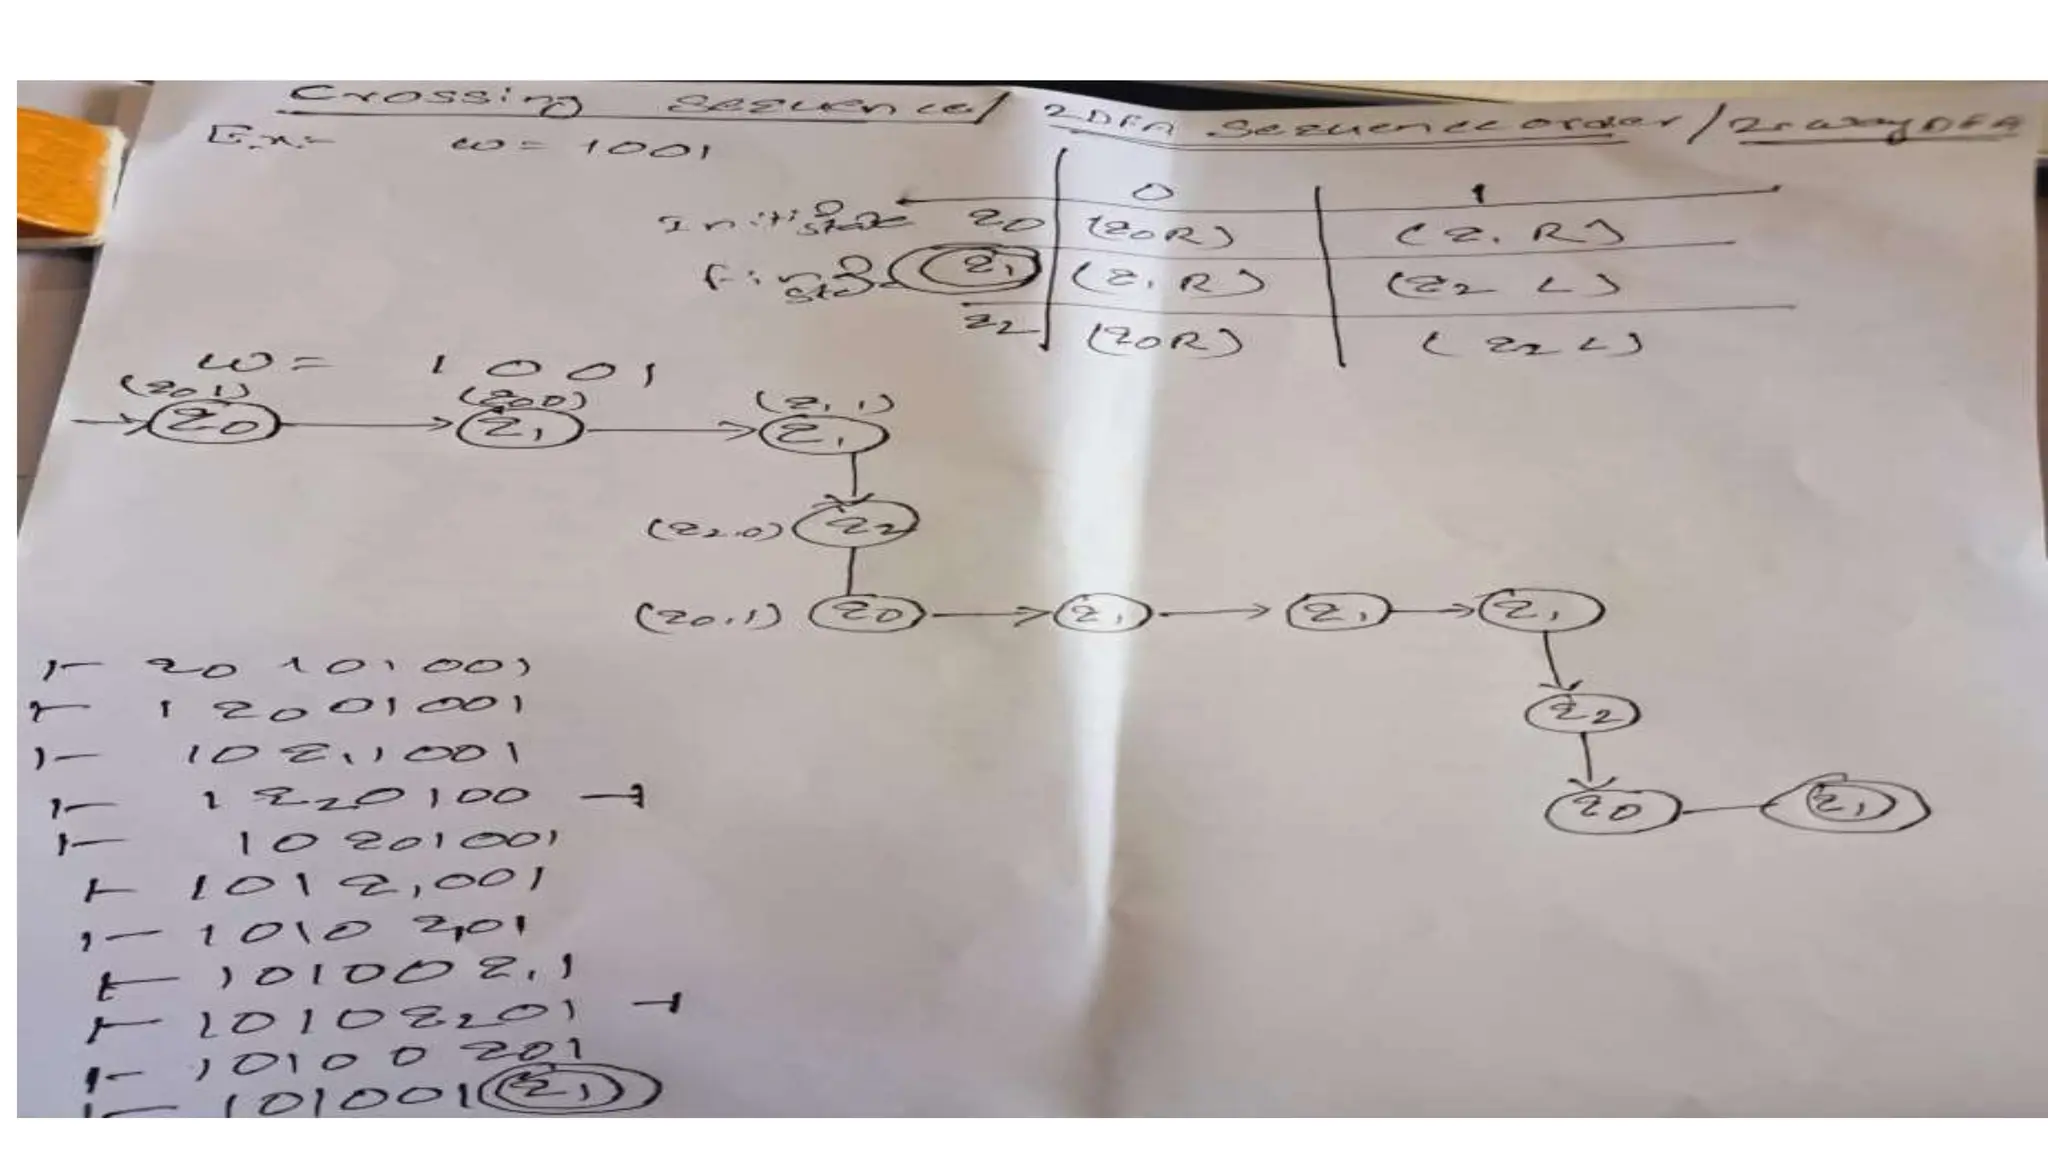 Crossing Sequence / 2DFA Sequence order / 2-way DFA
Ex:- w = 1001
0 1
Initial state q0 (q0 R) (q1 R)
Final state q1 (q1 R) (q2 L)
q2 (q0 R) (q2 L)
w = 1 0 0 1
(q0,1) (q0,0) (q1,1)
q0 q1 q1
(q2,0) q2
(q0,1) q0 q1 q1 q1
⊢ q0 101001
⊢ 1 q0 01001
⊢ 10 q1 1001
q2
⊢ 1 q2 0100 ⊣
q0 q1
⊢ 10 q0 1001
⊢ 101 q1 001
⊢ 1010 q1 01
⊢ 10100 q1 1
⊢ 1010 q2 01 ⊣
⊢ 10100 q0 1
⊢ 101001 q1